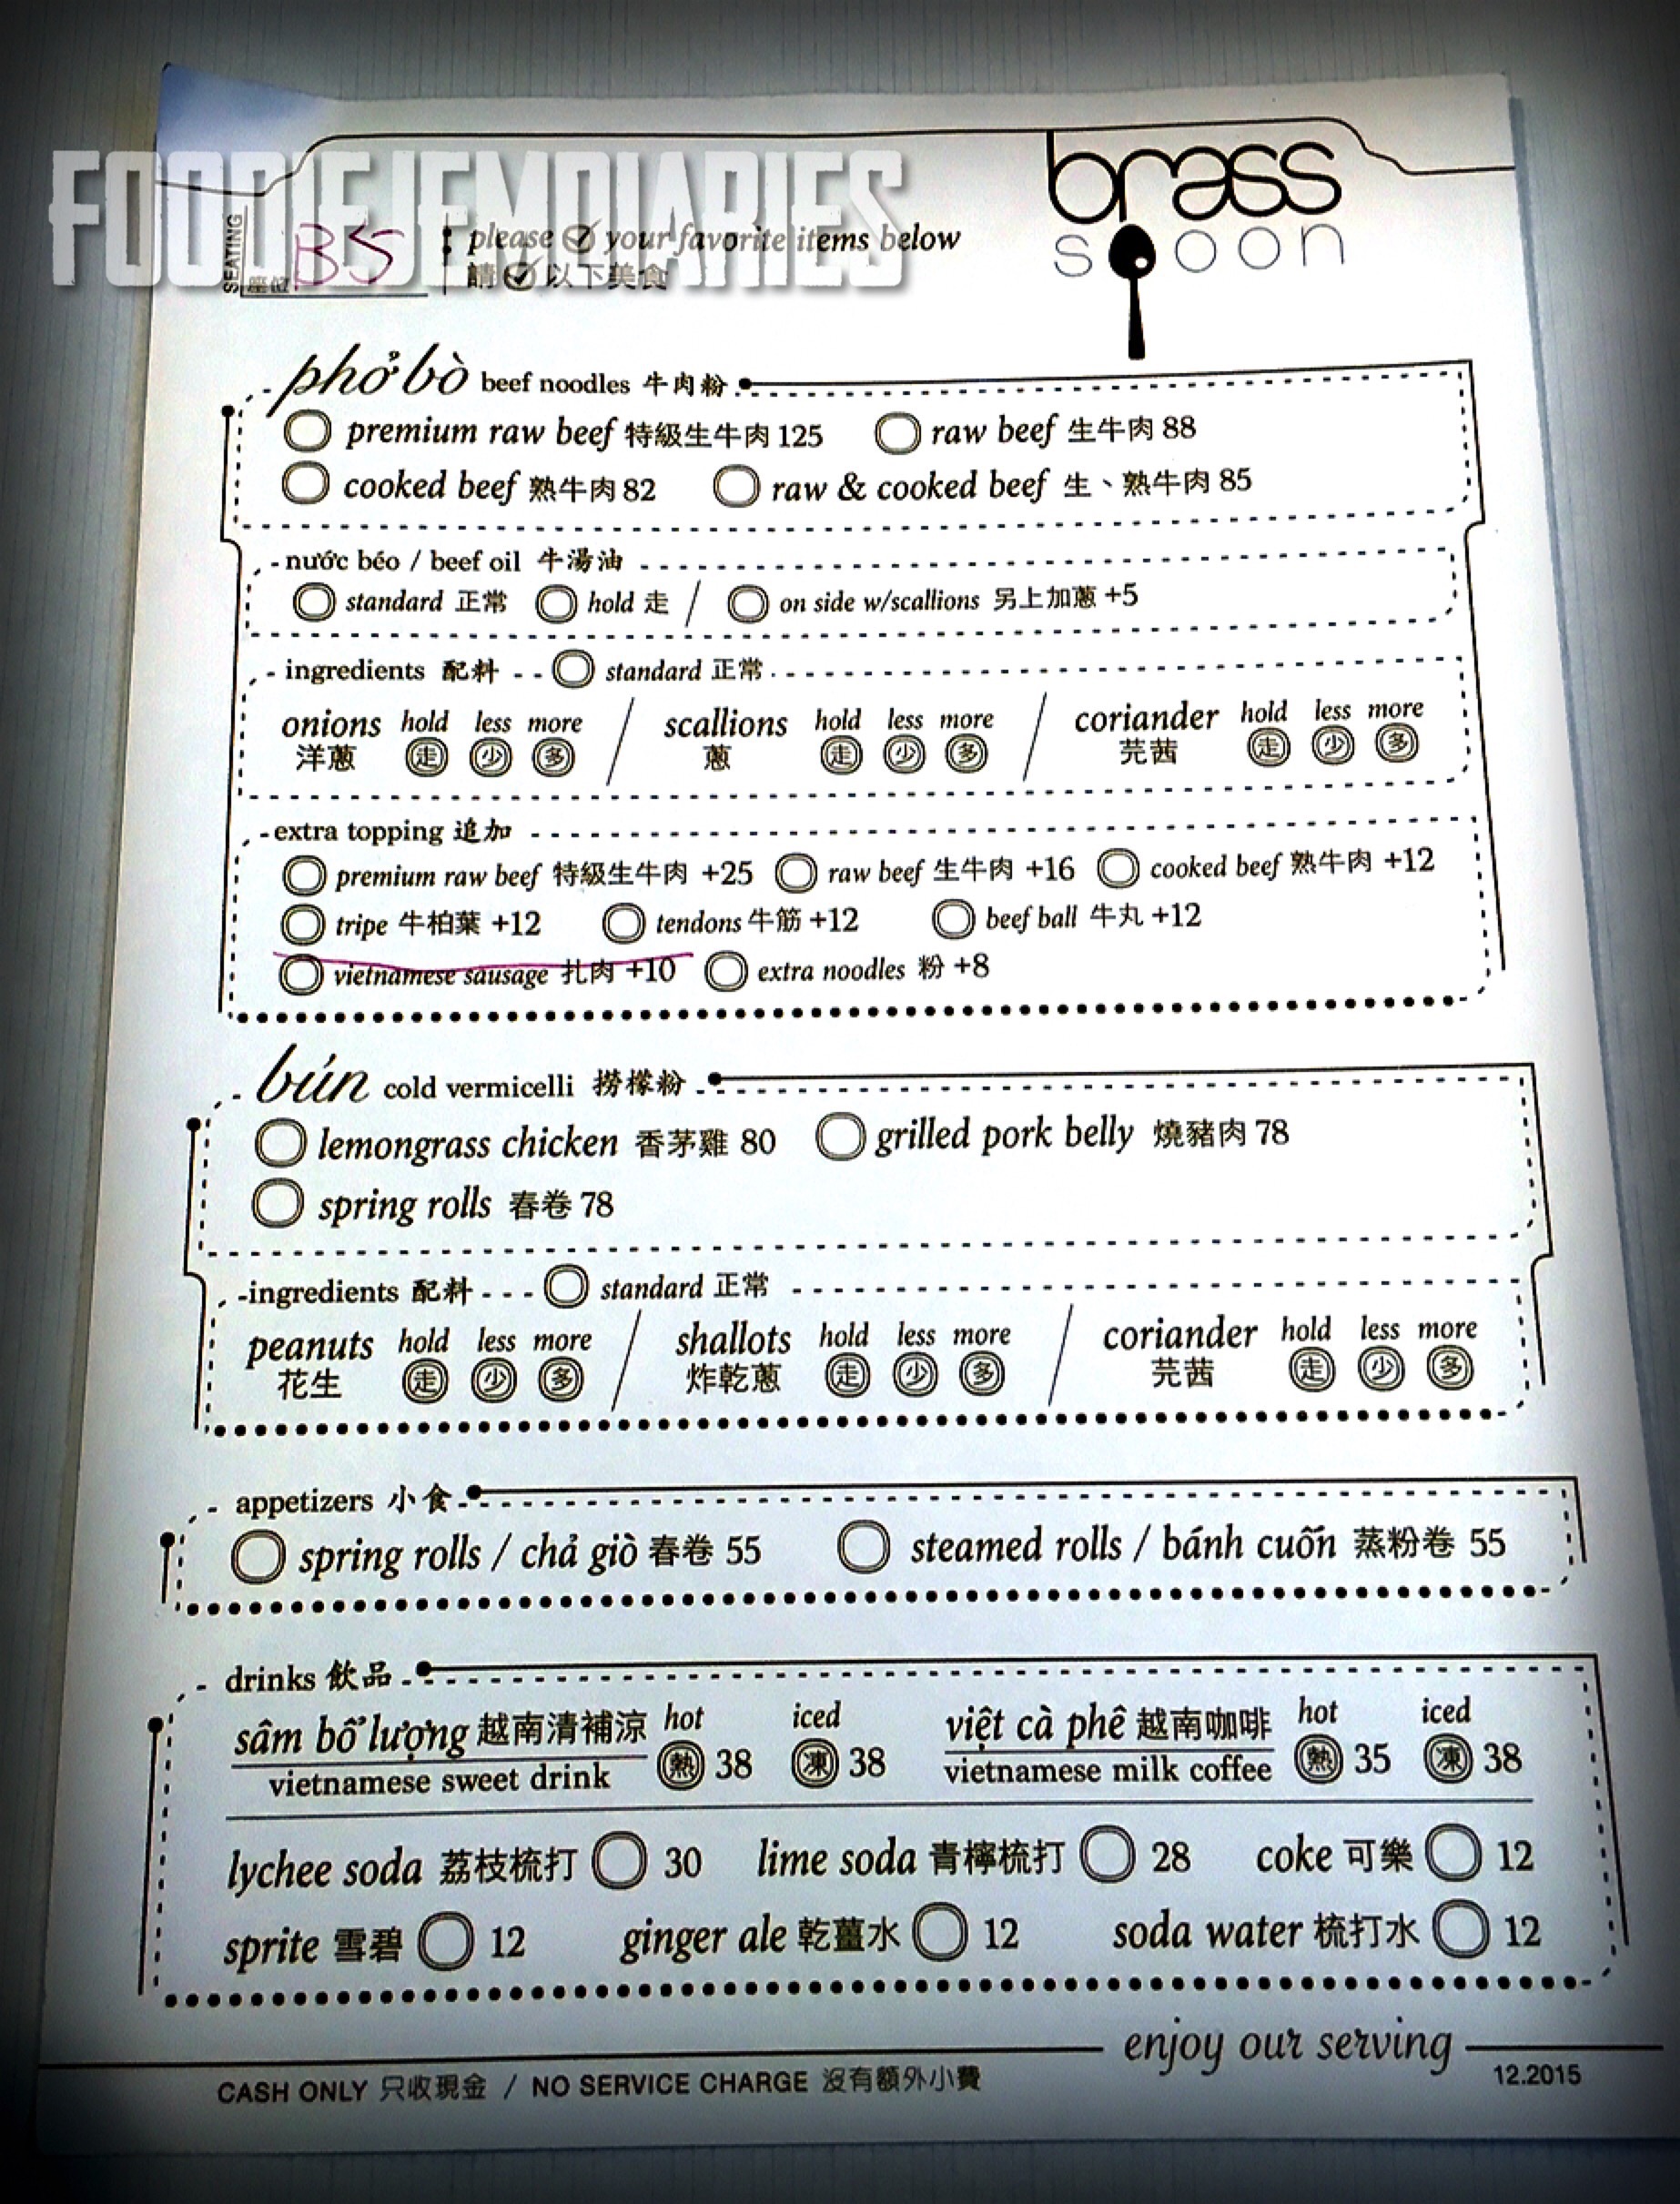 FOODIEJEMDIARIES
brass
spoon
SEATING 座位 B5
please your favorite items below
請 以下美食
phở bò beef noodles 牛肉粉
premium raw beef 特級生牛肉 125 raw beef 生牛肉 88
cooked beef 熟牛肉 82 raw & cooked beef 生、熟牛肉 85
nước béo / beef oil 牛湯油
standard 正常 hold 走 / on side w/scallions 另上加蔥 +5
ingredients 配料 standard 正常
onions hold less more / scallions hold less more / coriander hold less more
洋蔥 走 少 多 蔥 走 少 多 芫茜 走 少 多
extra topping 追加
premium raw beef 特級生牛肉 +25 raw beef 生牛肉 +16 cooked beef 熟牛肉 +12
tripe 牛柏葉 +12 tendons 牛筋 +12 beef ball 牛丸 +12
vietnamese sausage 扎肉 +10 extra noodles 粉 +8
bún cold vermicelli 撈檬粉
lemongrass chicken 香茅雞 80 grilled pork belly 燒豬肉 78
spring rolls 春卷 78
ingredients 配料 standard 正常
peanuts hold less more / shallots hold less more / coriander hold less more
花生 走 少 多 炸乾蔥 走 少 多 芫茜 走 少 多
appetizers 小食
spring rolls / chả giò 春卷 55 steamed rolls / bánh cuốn 蒸粉卷 55
drinks 飲品
sâm bổ lượng 越南清補涼 hot iced việt cà phê 越南咖啡 hot iced
vietnamese sweet drink 熱 38 凍 38 vietnamese milk coffee 熱 35 凍 38
lychee soda 荔枝梳打 30 lime soda 青檸梳打 28 coke 可樂 12
sprite 雪碧 12 ginger ale 乾薑水 12 soda water 梳打水 12
enjoy our serving
CASH ONLY 只收現金 / NO SERVICE CHARGE 沒有額外小費 12.2015